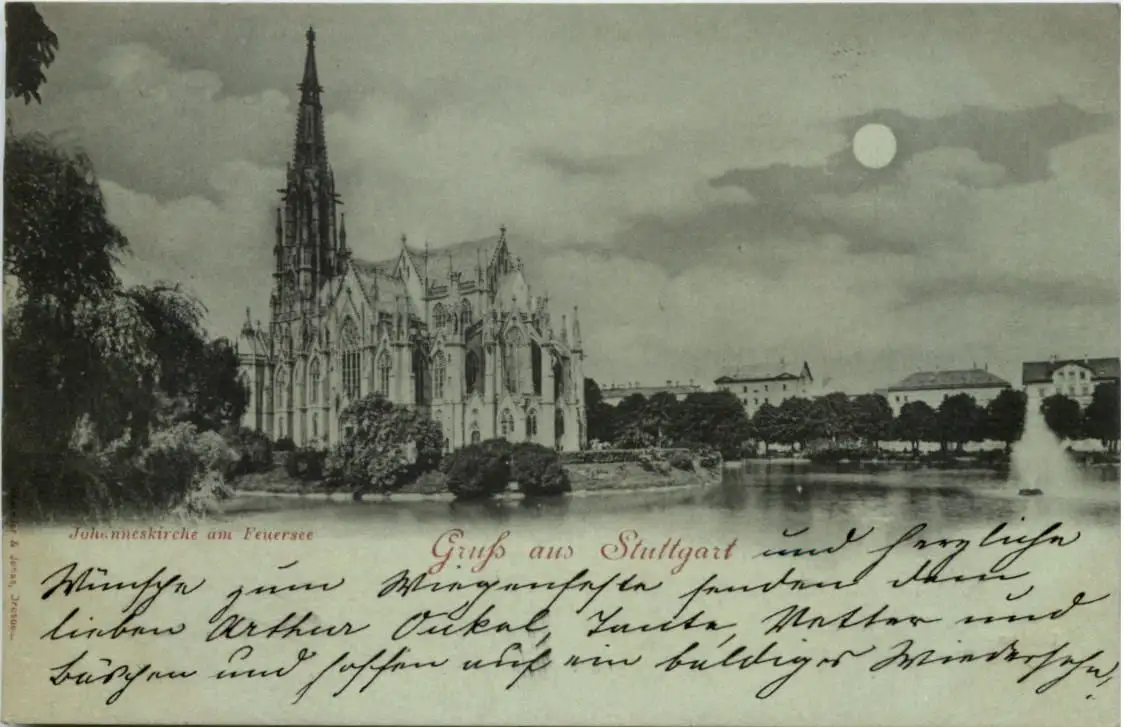 Johanneskirche am Feuersee
Gruß aus Stuttgart und herzliche
Wünsche zum Wiegenfeste senden dem
lieben Arthur Onkel, Tante, Vetter und
Bäschen und hoffen auf ein baldiges Wiedersehn,
& Jonas, Dresden